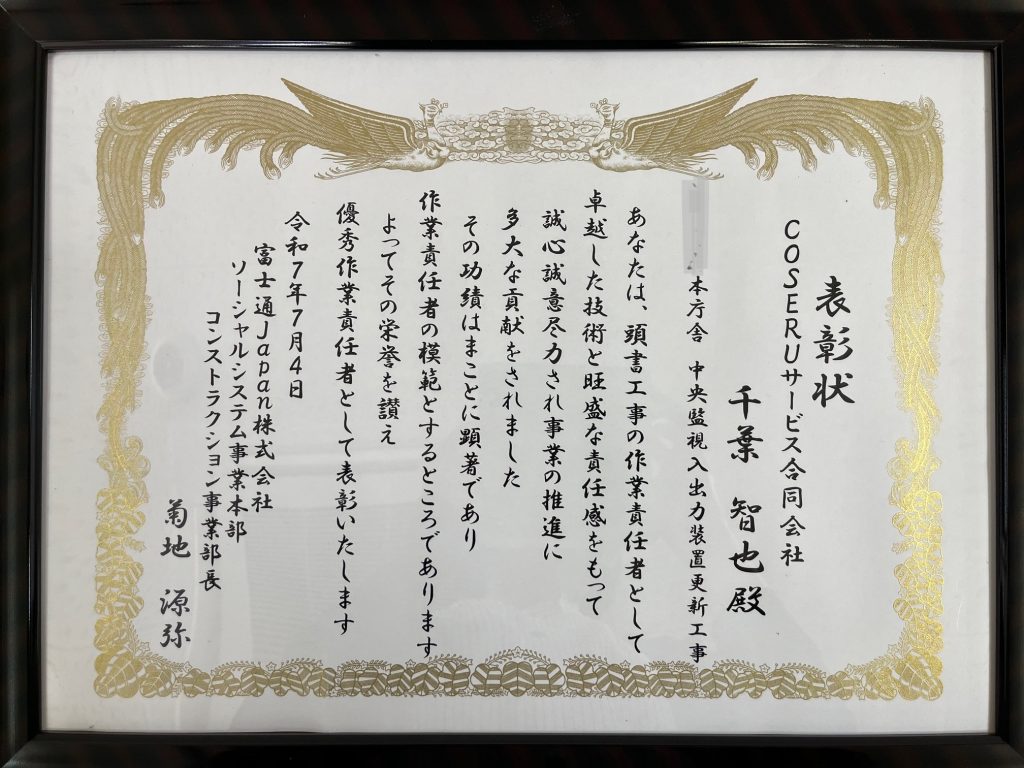 表彰状
COSERUサービス合同会社
千葉 智也 殿
本庁舎 中央監視入出力装置更新工事
あなたは、頭書工事の作業責任者として
卓越した技術と旺盛な責任感をもって
誠心誠意尽力され事業の推進に
多大な貢献をされました
その功績はまことに顕著であり
作業責任者の模範とするところであります
よってその栄誉を讃え
優秀作業責任者として表彰いたします
令和7年7月4日
富士通Japan株式会社
ソーシャルシステム事業本部
コンストラクション事業部長
菊地 源弥